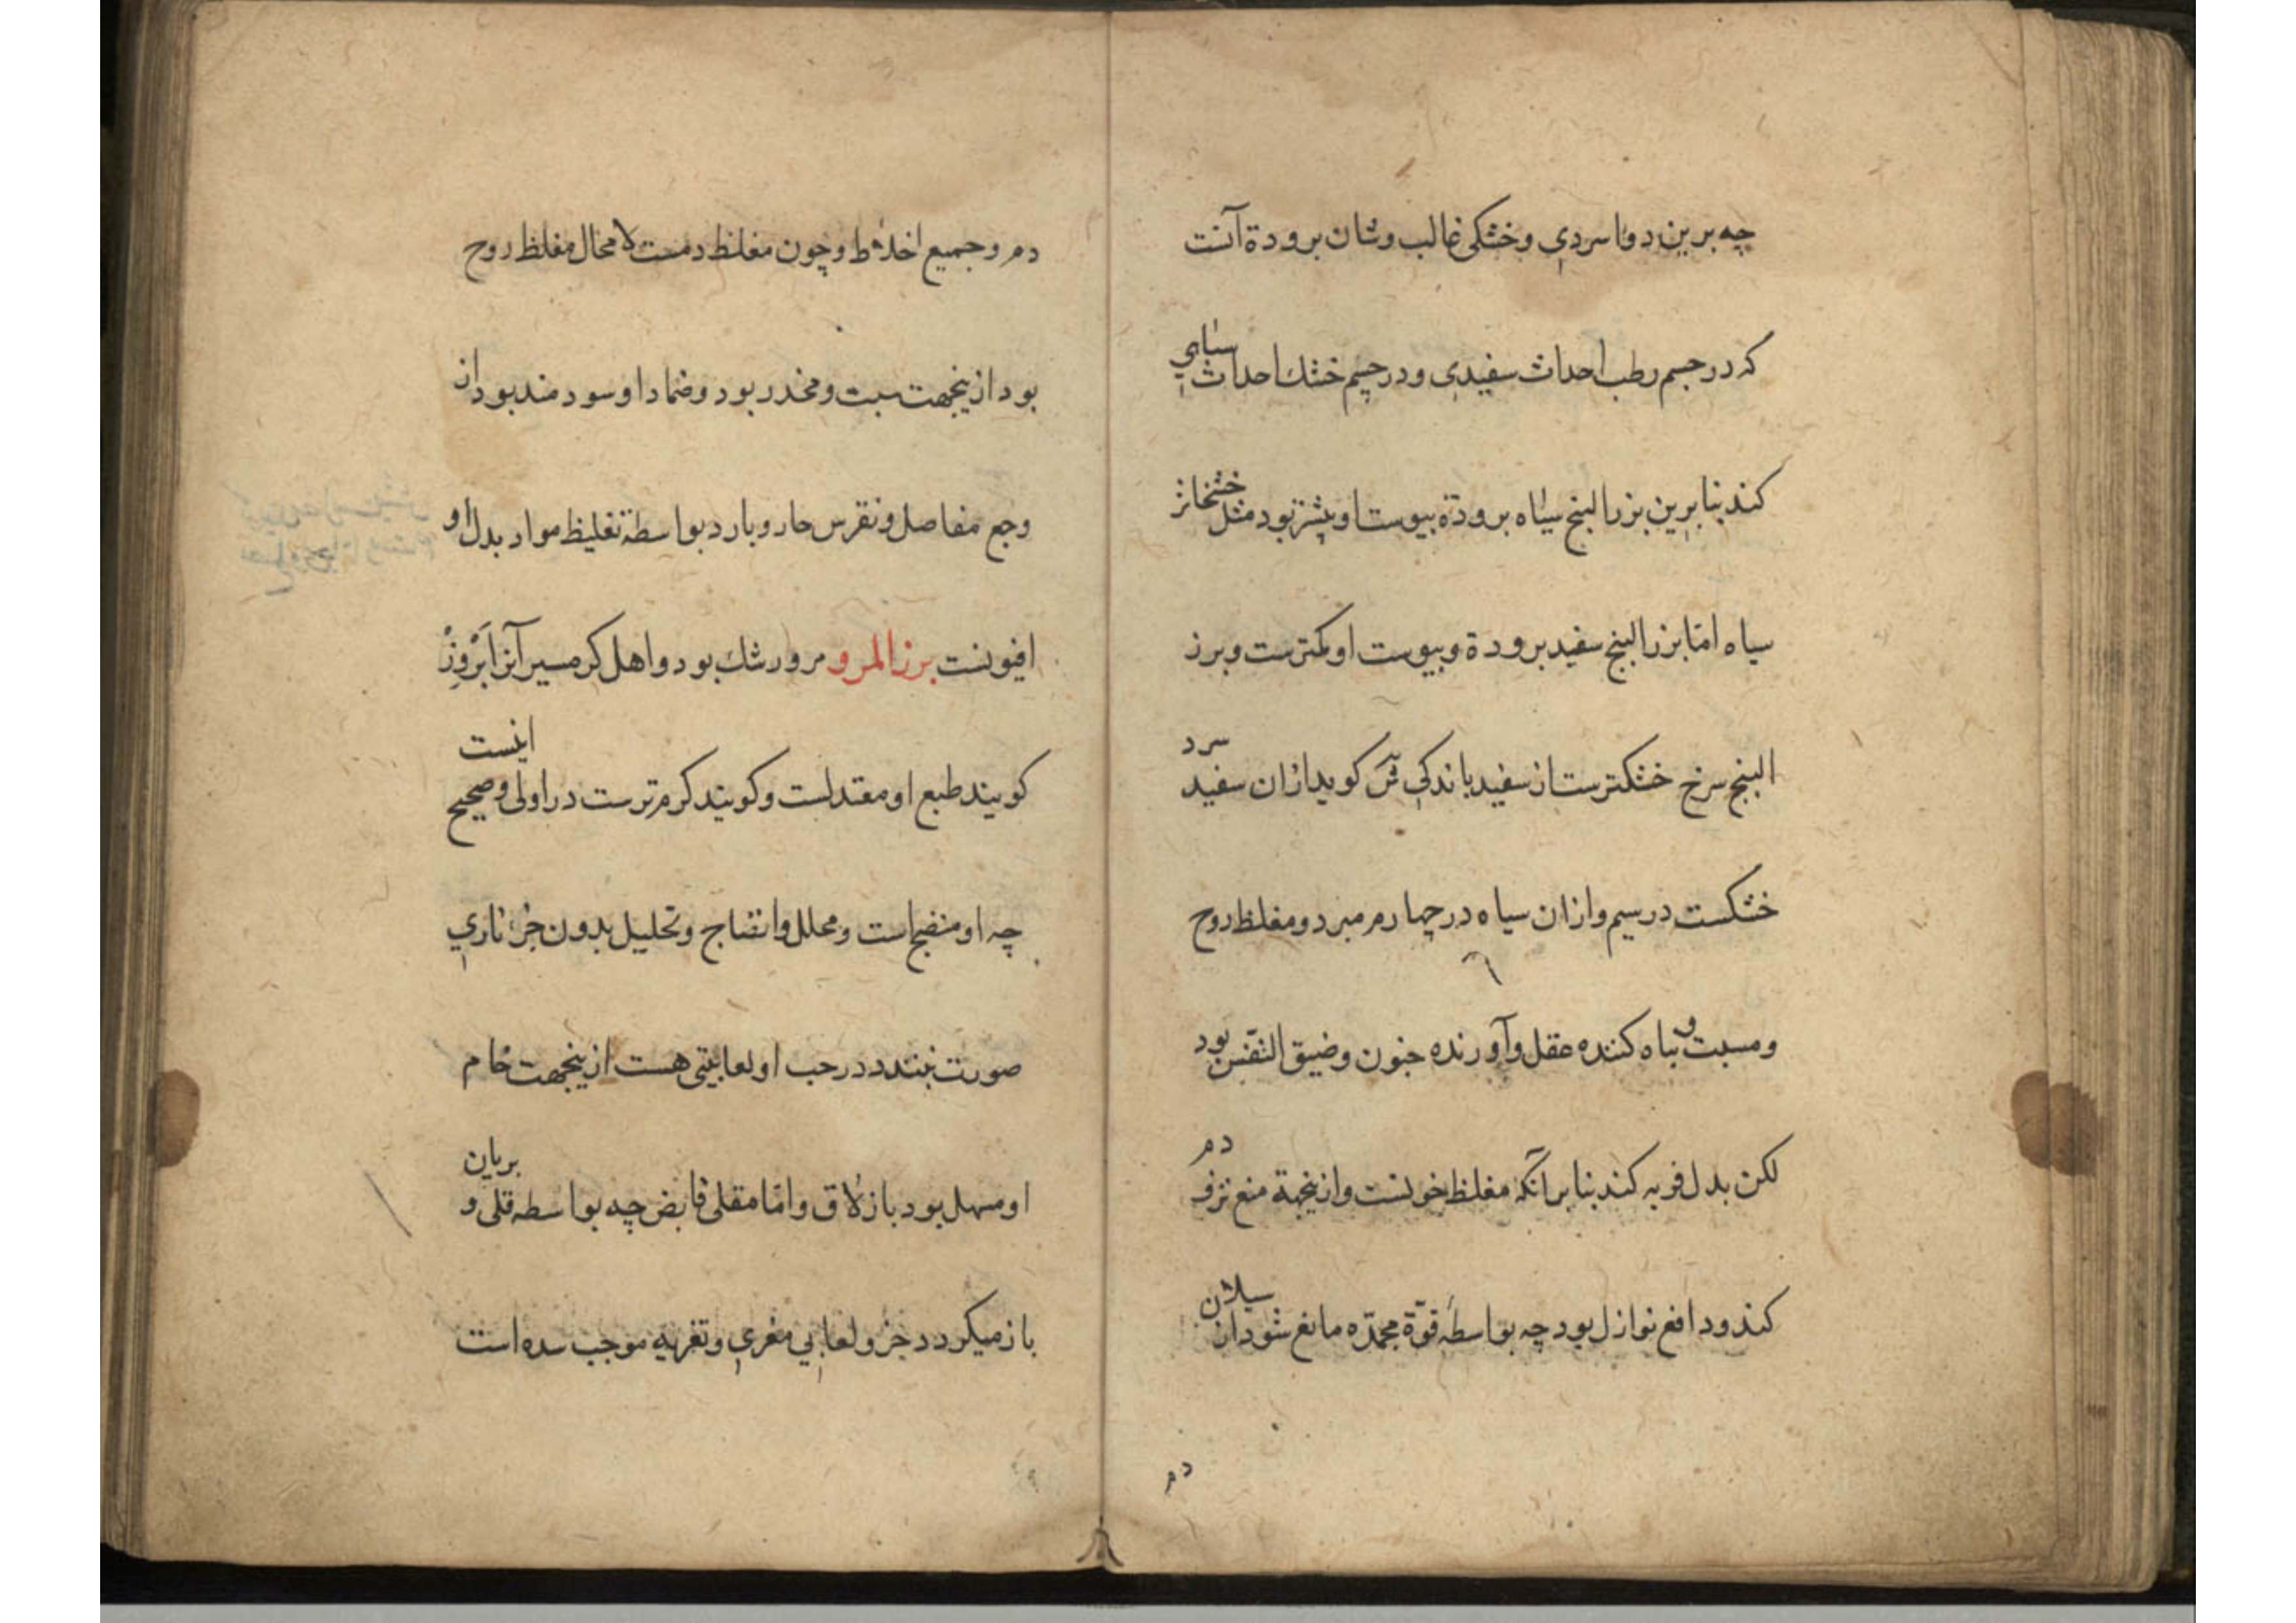 چه برین دوا سردی و خشکی غالب و شان برودة آنست
که در جسم رطب احداث سفیدی و در جسم خشك احداث سیاهی
کند بنا برین بزر البنج سیاه برودة یبوست او بیشتر بود مثل خشخاش
سیاه امّا بزر البنج سفید برودة و یبوست او کمترست و بزر
البنج سرخ خشکترست از سفید باندکی گوید ازان سفید سرد
خشکست در سیم وازان سیاه در چهارم مبرد و مغلظ روح
و مسبت و تباه کننده عقل و آورنده جنون و ضیق النّفس بود
لکن بدن فربه کند بنا برآنکه مغلظ خونست و ازینجهة منع نزف دم
کند و دافع نوازل بود چه بواسطهٔ قوّة مجمّده مانع شود از سیلان
دم
دم و جمیع اخلاط و چون مغلظ دمست لا محال مغلظ روح
بود ازینجهت مسبت و مخدر بود و ضماد او سودمند بود از
وجع مفاصل و نقرس حار و بارد بواسطهٔ تغلیظ مواد بدل او
افیونست بزر المرو مرو رشك بود و اهل کرمسیر آنرا بَرْوَزْ
کویند طبع او معتدلست و کویند کرمترست در اولی و صحیح اینست
چه او منضج است و محلل و انضاج و تحلیل بدون جزء ناری
صورت نبندد در حب او لعابیتی هست ازینجهت خام
او مسهل بود بازلاق و امّا مقلی قابض چه بواسطه قلی و بریان
باز میکردد جزو لعابی مغری و تغریه موجب سده است